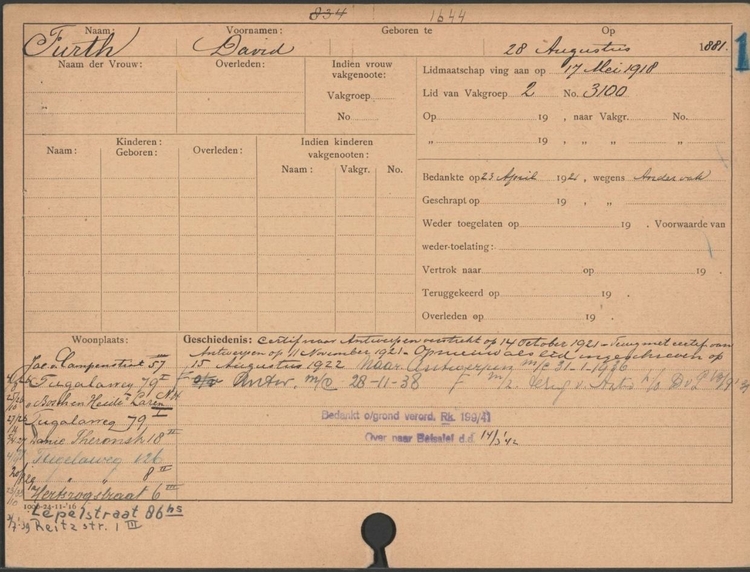 834 1644
Naam: Voornamen: Geboren te Op
Furth David 28 Augustus 1881. 1
Naam der Vrouw: Overleden: Indien vrouw vakgenoote:
Vakgroep
No
Lidmaatschap ving aan op 17 Mei 1918
Lid van Vakgroep 2 No. 3100
Op 19 , naar Vakgr. No.
„ 19 , „ „ „
Kinderen:
Naam: Geboren: Overleden: Indien kinderen vakgenooten:
Naam: Vakgr. No.
Bedankte op 23 April 1921, wegens Ander vak
Geschrapt op 19 , „
Weder toegelaten op 19 . Voorwaarde van
weder-toelating:
Vertrok naar op 19 .
Teruggekeerd op 19 .
Overleden op 19 .
Woonplaats:
Jac v Campenstraat 57
Tugelaweg 79 II
Laren N.H.
Tugelaweg 79 I
Danie Theronstr 18 III
Tugelaweg 126
„ 8 II
Hertzogstraat 6 III
1000-24-11-'16
Lepelstraat 86 hs
Reitzstr. 1 III
Geschiedenis: Certif. naar Antwerpen verstrekt op 14 October 1921 - Terug met certif. van
Antwerpen op 11 November 1921 - Opnieuw als lid ingeschreven op
15 Augustus 1922 Naar Antwerpen m/c 31-1-1926
F Antw. m/c 28-11-38 F
Bedankt o/grond verord. Rk. 199/41
Over naar Betsalel d.d. 14/3 '42